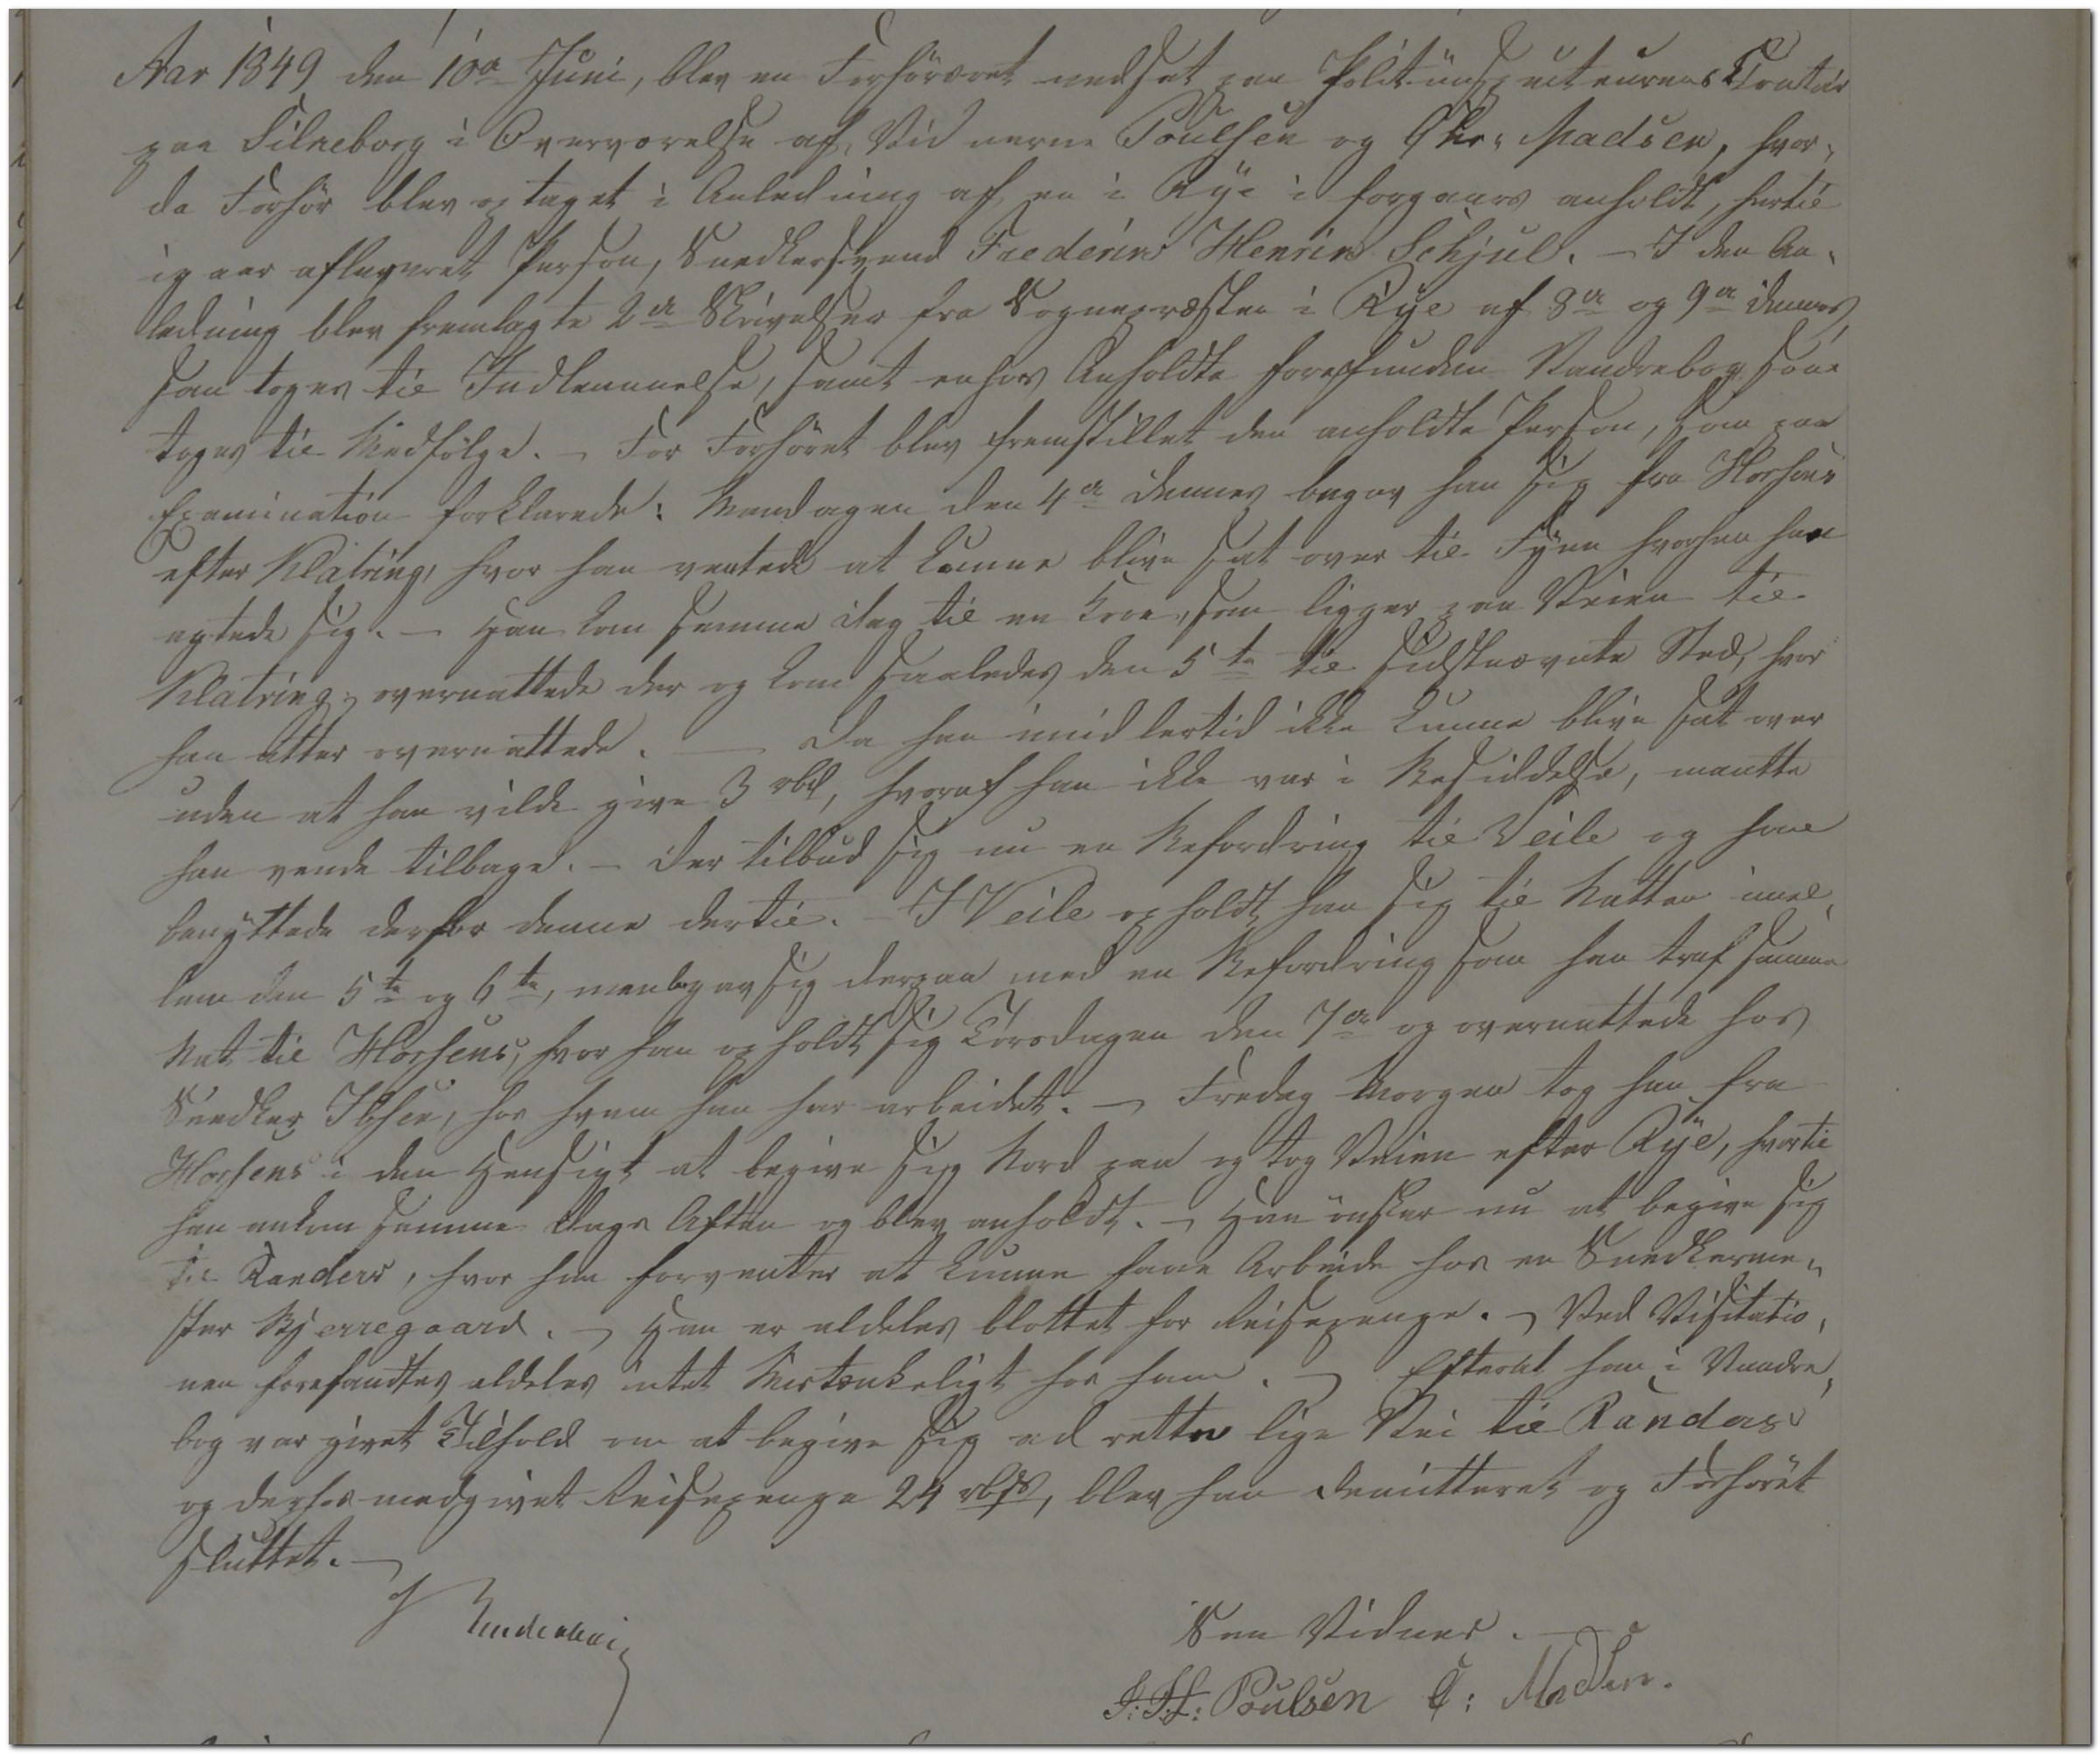 Aar 1849 den 10de Juni, blev en Forhörsret nedsat paa Politiinspecteurens Contoir
paa Silkeborg i Overværelse af Vidnerne Poulsen og Chr. Madsen, hvor-
da Forhör blev optaget i Anledning af en i Rye i forgaars anholdt, hertil
igaar afleveret Person, Snedkersvend Frederik Henrik Schjul. – I den An-
ledning blev fremlagte 2de Skrivelser fra Sognepræsten i Rye af 8de og 9de dennes
som toges til Indlemmelse, samt en hos Anholdte forefunden Vandrebog som
toges til Medfölge. – For Forhöret blev fremstillet den anholdte Person, som paa
Examination forklarede: Mandagen den 4de dennes begav han sig fra Horsens
efter Klakring, hvor han ventede at kunne blive sat over til Fyen hvorhen han
agtede sig. – Han kom samme Dag til en Kroe, som ligger paa Veien til
Klakring, overnattede der og kom saaledes den 5te til sidstnævnte Sted, hvor
han atter overnattede. – Da han imidlertid ikke kunne blive sat over
uden at han vilde give 3 rbd, hvoraf han ikke var i Besiddelse, maatte
han vende tilbage. – Der tilböd sig nu en Befordring til Veile og han
benyttede derfor denne dertil. – I Veile opholdt han sig til Natten imel-
lem den 5te og 6te, men begav sig derpaa med en Befordring som han traf samme
Nat til Horsens, hvor han opholdt sig Torsdagen den 7de og overnattede hos
Snedker Ibsen, hos hvem han har arbeidet. – Fredag Morgen tog han fra
Horsens i den Hensigt at begive sig Nord paa og tog Veien efter Rye, hvortil
han ankom samme Dags Aften og blev anholdt. – Han önsker nu at begive sig
til Randers, hvor han forventer at kunne faae Arbeide hos en Snedkerme-
ster Bjerregaard. – Han er aldeles blottet for Reisepenge. – Ved Visitatio-
nen forefandtes aldeles intet Mistænkeligt hos ham. – Efterat ham i Vandre-
bog var givet Tilhold om at begive sig ad rette lige Vei til Randers
og derhos medgivet Reisepenge 24 rbs, blev han demitteret og Forhöret
sluttet. –
Som Vidner. –
Poulsen C: Madsen.